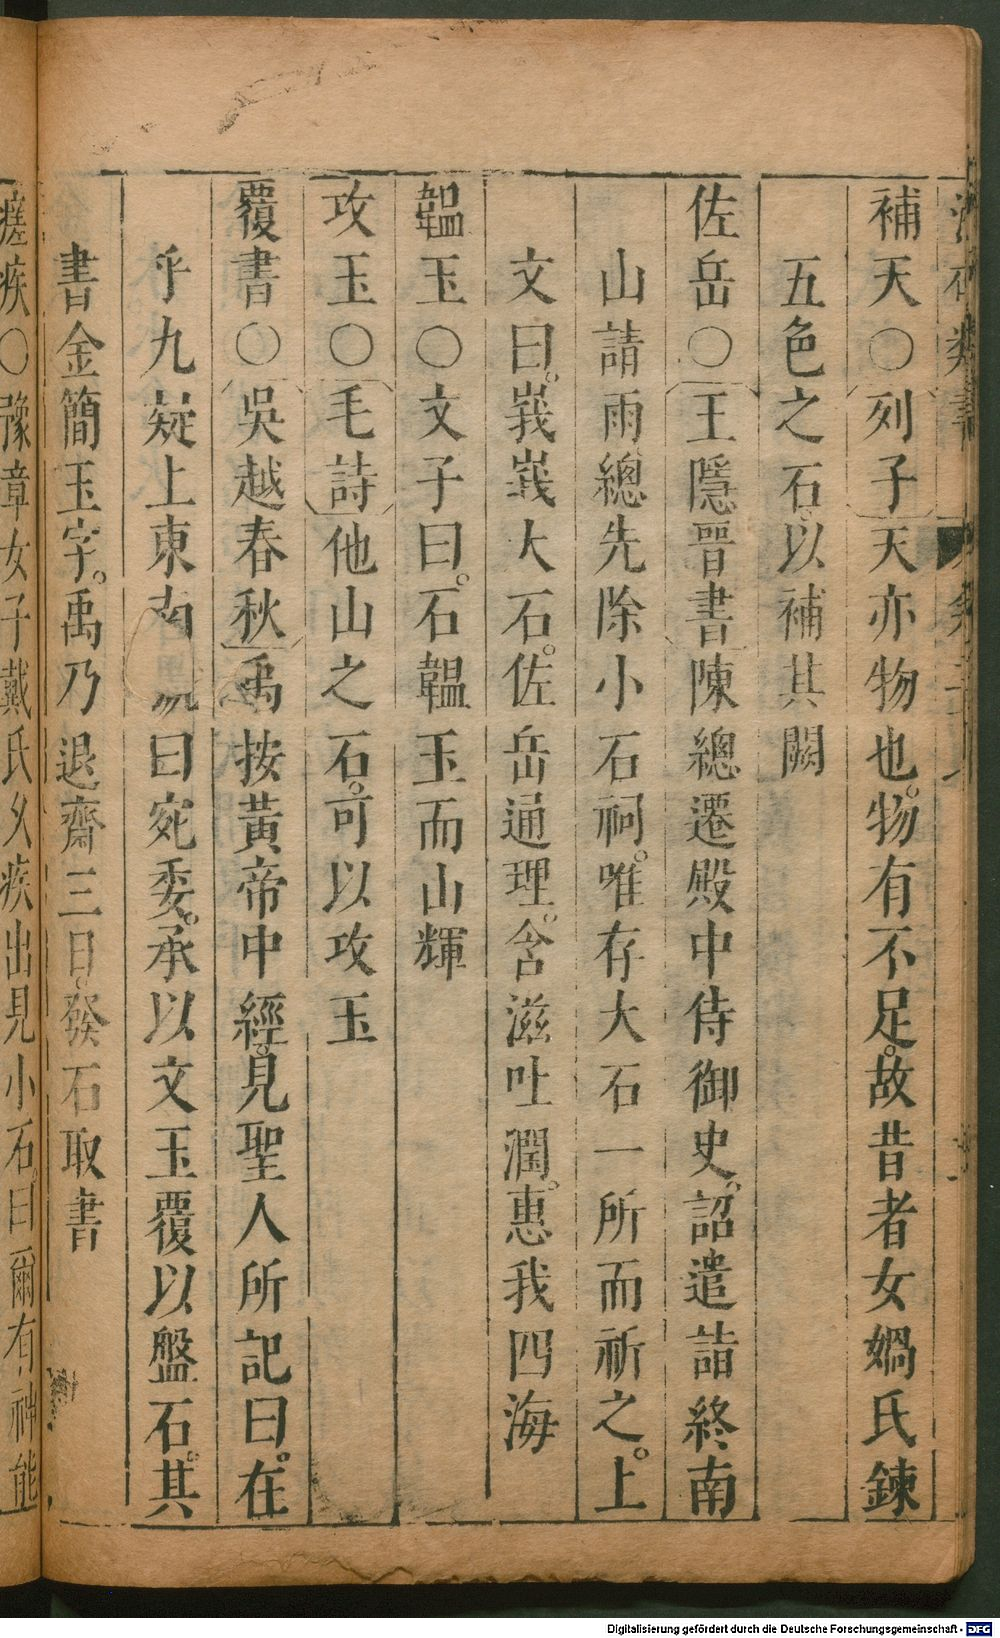 補天○列子天亦物也。物有不足。故昔者女媧氏鍊
五色之石。以補其闕
佐岳○王隱晉書陳總遷殿中侍御史。詔遣詣終南
山請雨總先除小石祠。唯存大石一所而祈之。上
文曰。峩峩大石。佐岳通理。含滋吐潤。惠我四海
韞玉○文子曰。石韞玉而山輝
攻玉○毛詩他山之石。可以攻玉
覆書○吳越春秋禹按黃帝中經。見聖人所記曰。在
乎九疑上東南曰宛委。承以文玉覆以盤石。其
書金簡玉字。禹乃退齋三日。發石取書
瘥疾○豫章女子戴氏久疾出見小石。曰爾有神能
Digitalisierung gefördert durch die Deutsche Forschungsgemeinschaft - DFG